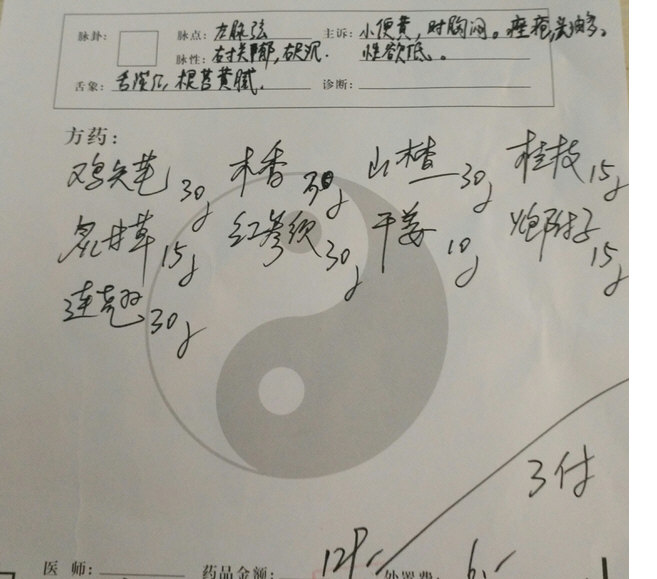 脉卦: 脉点: 左脉弦 主诉: 小便黄,时胸闷。痤疮,头油多。
脉性: 右关郁,右尺沉. 性欲低。
舌象: 舌深红,根苔黄腻. 诊断:
方药:
鸡矢藤30g 木香30g 山楂30g 桂枝15g
炙甘草15g 红参须30g 干姜10g 炮附子15g
连翘30g
3付
医师: 药品金额: 129 处置费: 6